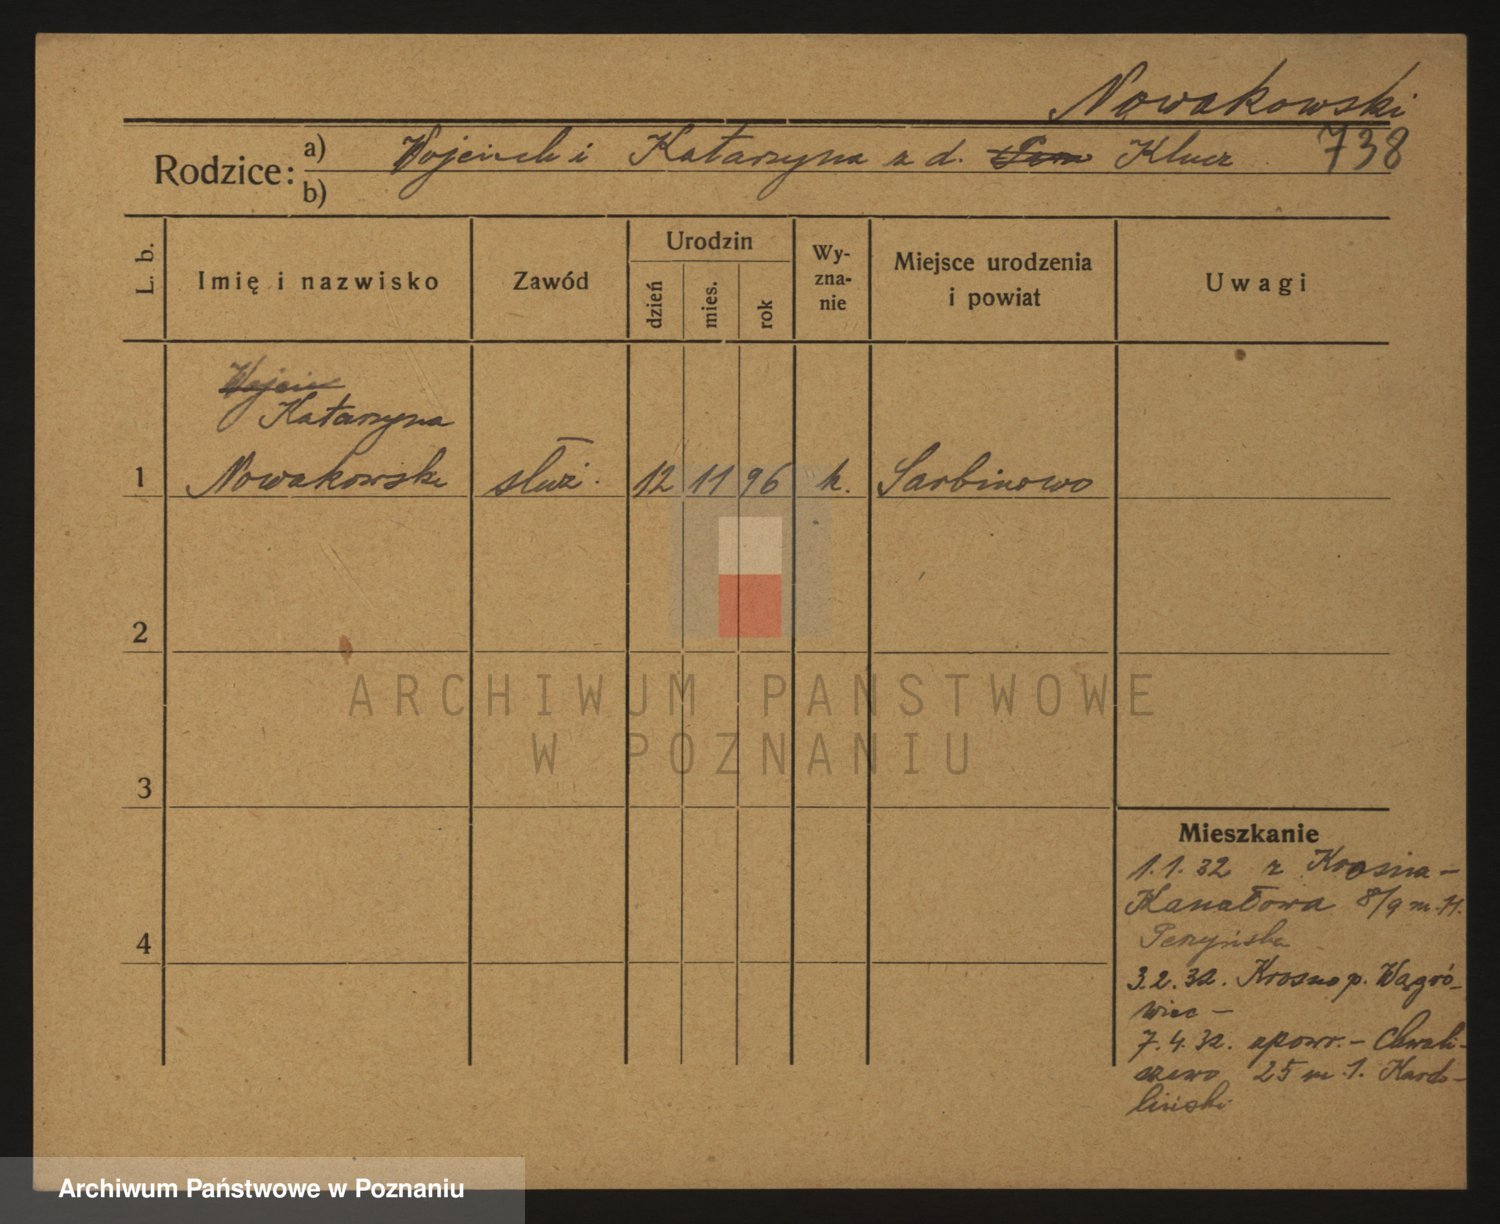 Nowakowski
Rodzice: a) Wojciech i Katarzyna z d. Klucz 738
b)
L. b. Imię i nazwisko Zawód Urodzin dzień mies. rok Wy-zna-nie Miejsce urodzenia i powiat Uwagi
Wojcie
Katarzyna
1 Nowakowska służ. 12 11 96 k. Sarbinowo
2
ARCHIWUM PAŃSTWOWE
W POZNANIU
3
Mieszkanie
1.1.32 z Krosna -
Kanałowa 8/9 m. 11.
4
3.2.32. Krosno p. Wągró-
wiec -
7.4.32. zpowr. - Chwali-
szewo 25 m. 1. Karo-
liński
Archiwum Państwowe w Poznaniu